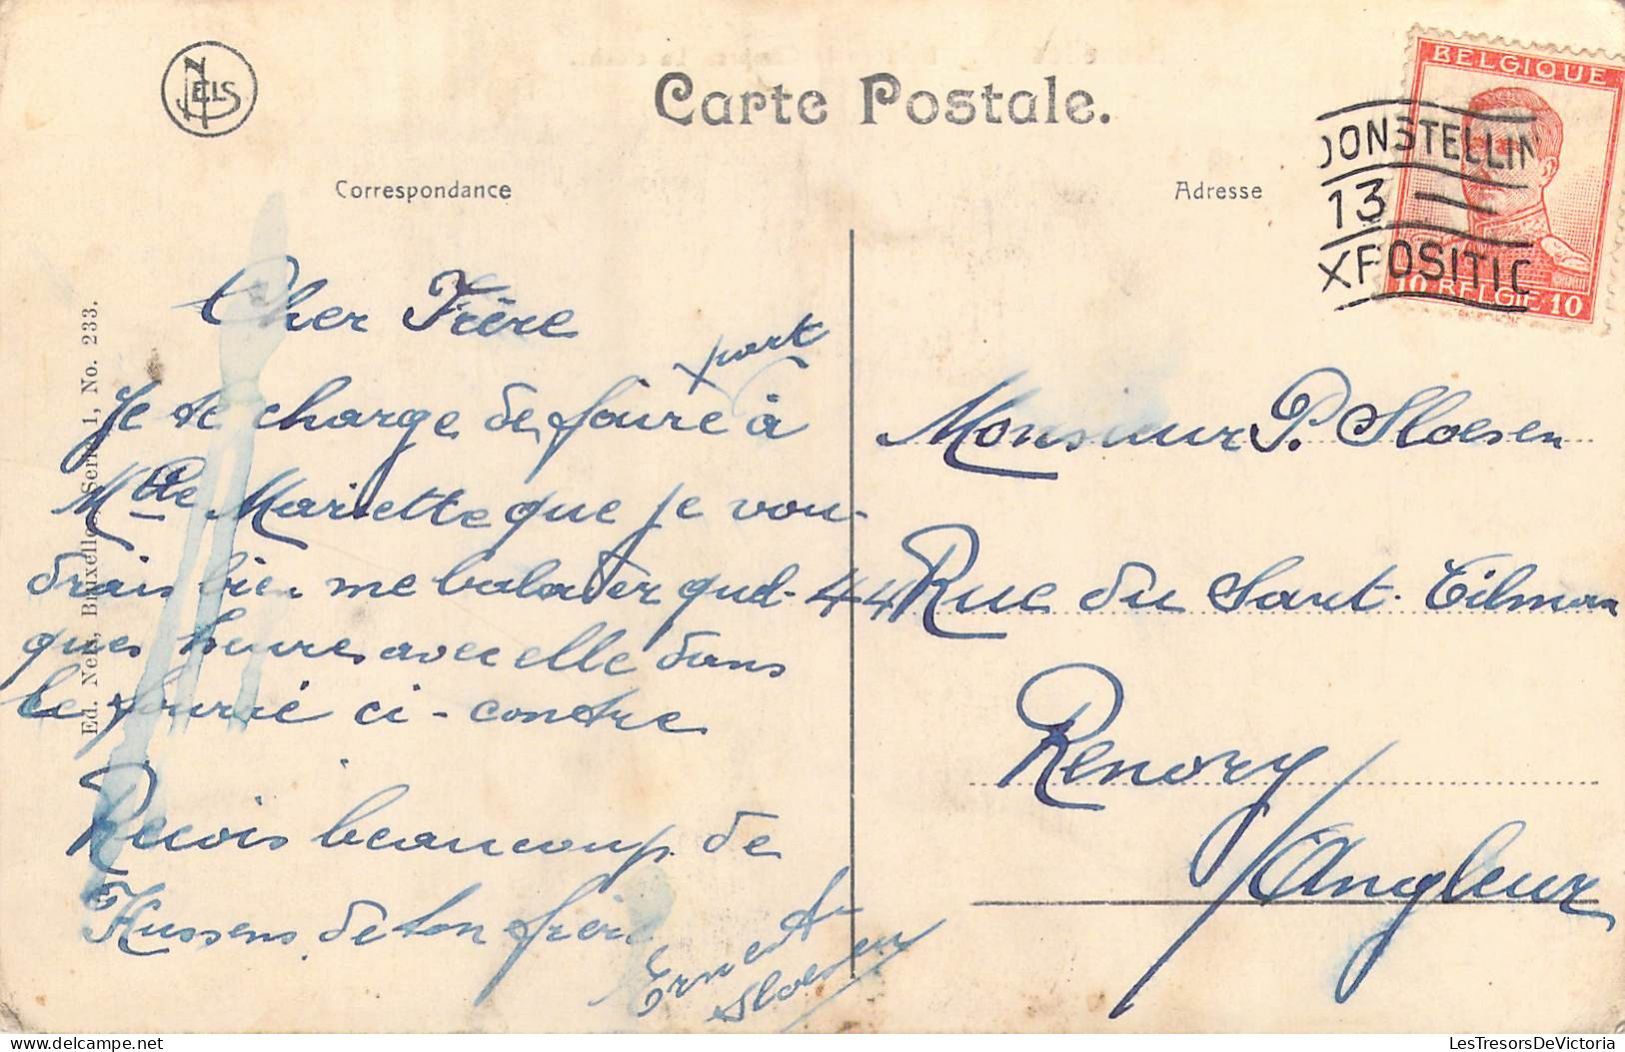 NELS
Carte Postale.
BELGIQUE
TOONSTELLIN
13
XPOSITIO
10 BELGIE 10
Correspondance
Adresse
Ed. Nels, Bruxelles Serie 1, No. 233.
Cher Frère
part
Je te charge de faire x à
Mlle Mariette que je vou-
drais bien me balader quel-
ques heures avec elle dans
le fourré ci-contre
Recois beaucoup de
Kussens de ton frère
Ernest
Sloesen
Monsieur P. Sloesen
44 Rue du Sart-Tilman
Renory
/Angleur
LesTresorsDeVictoria.com